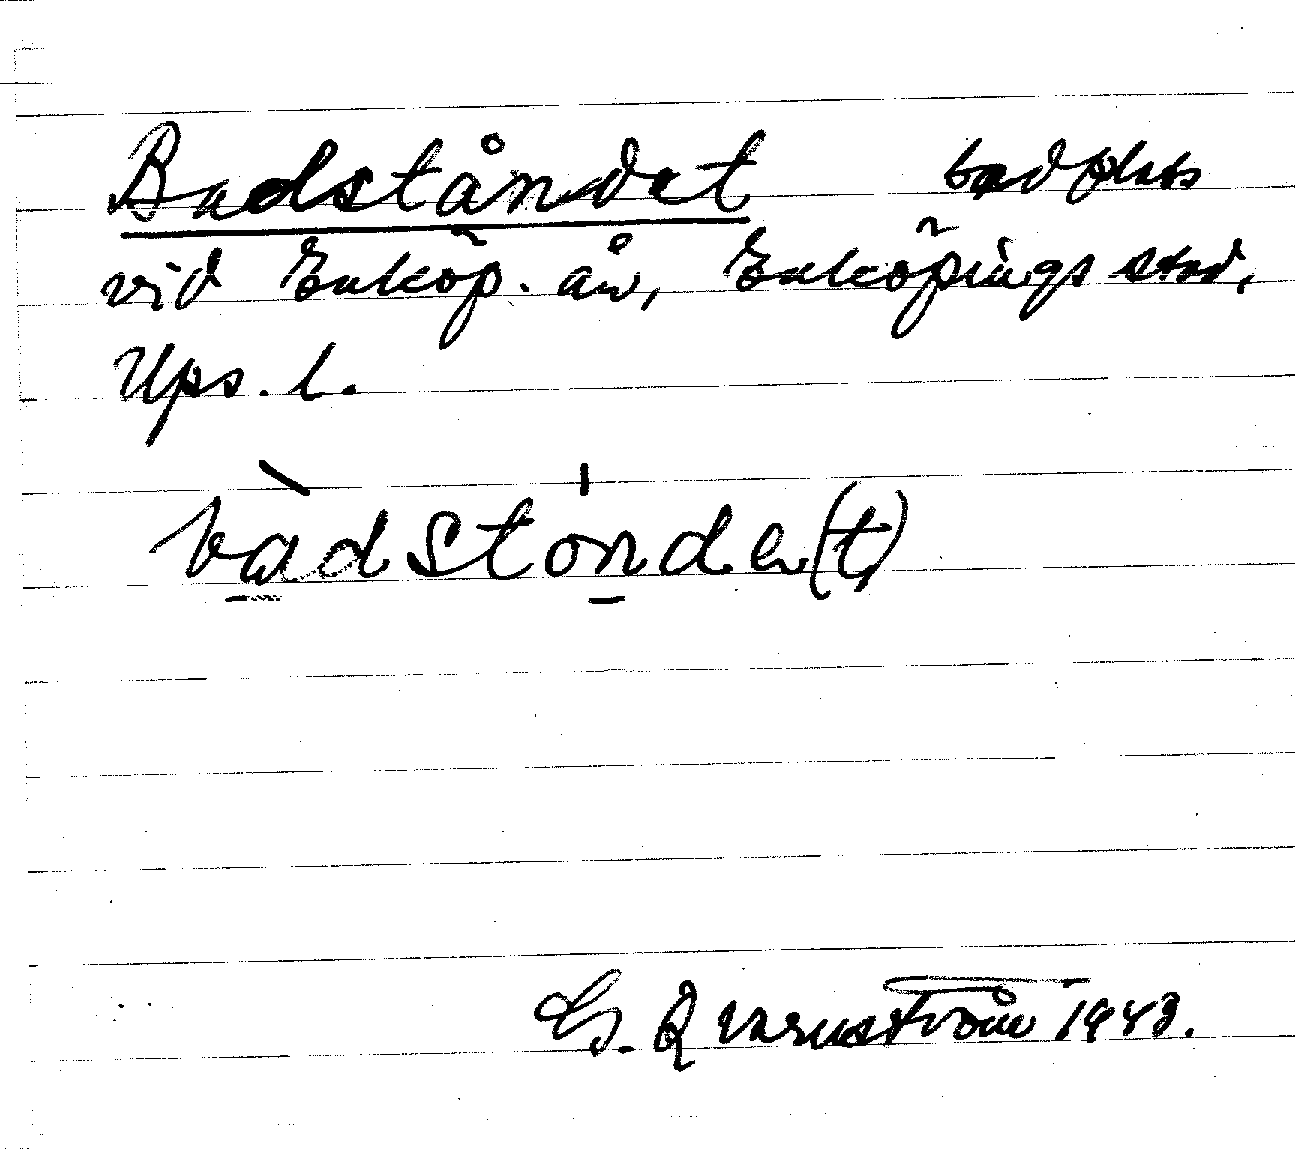 Badståndet badplats
vid Enköp. ån, Enköpings stad,
Ups. l.
bàdstonde(t)
G. Qvarnström 1943.